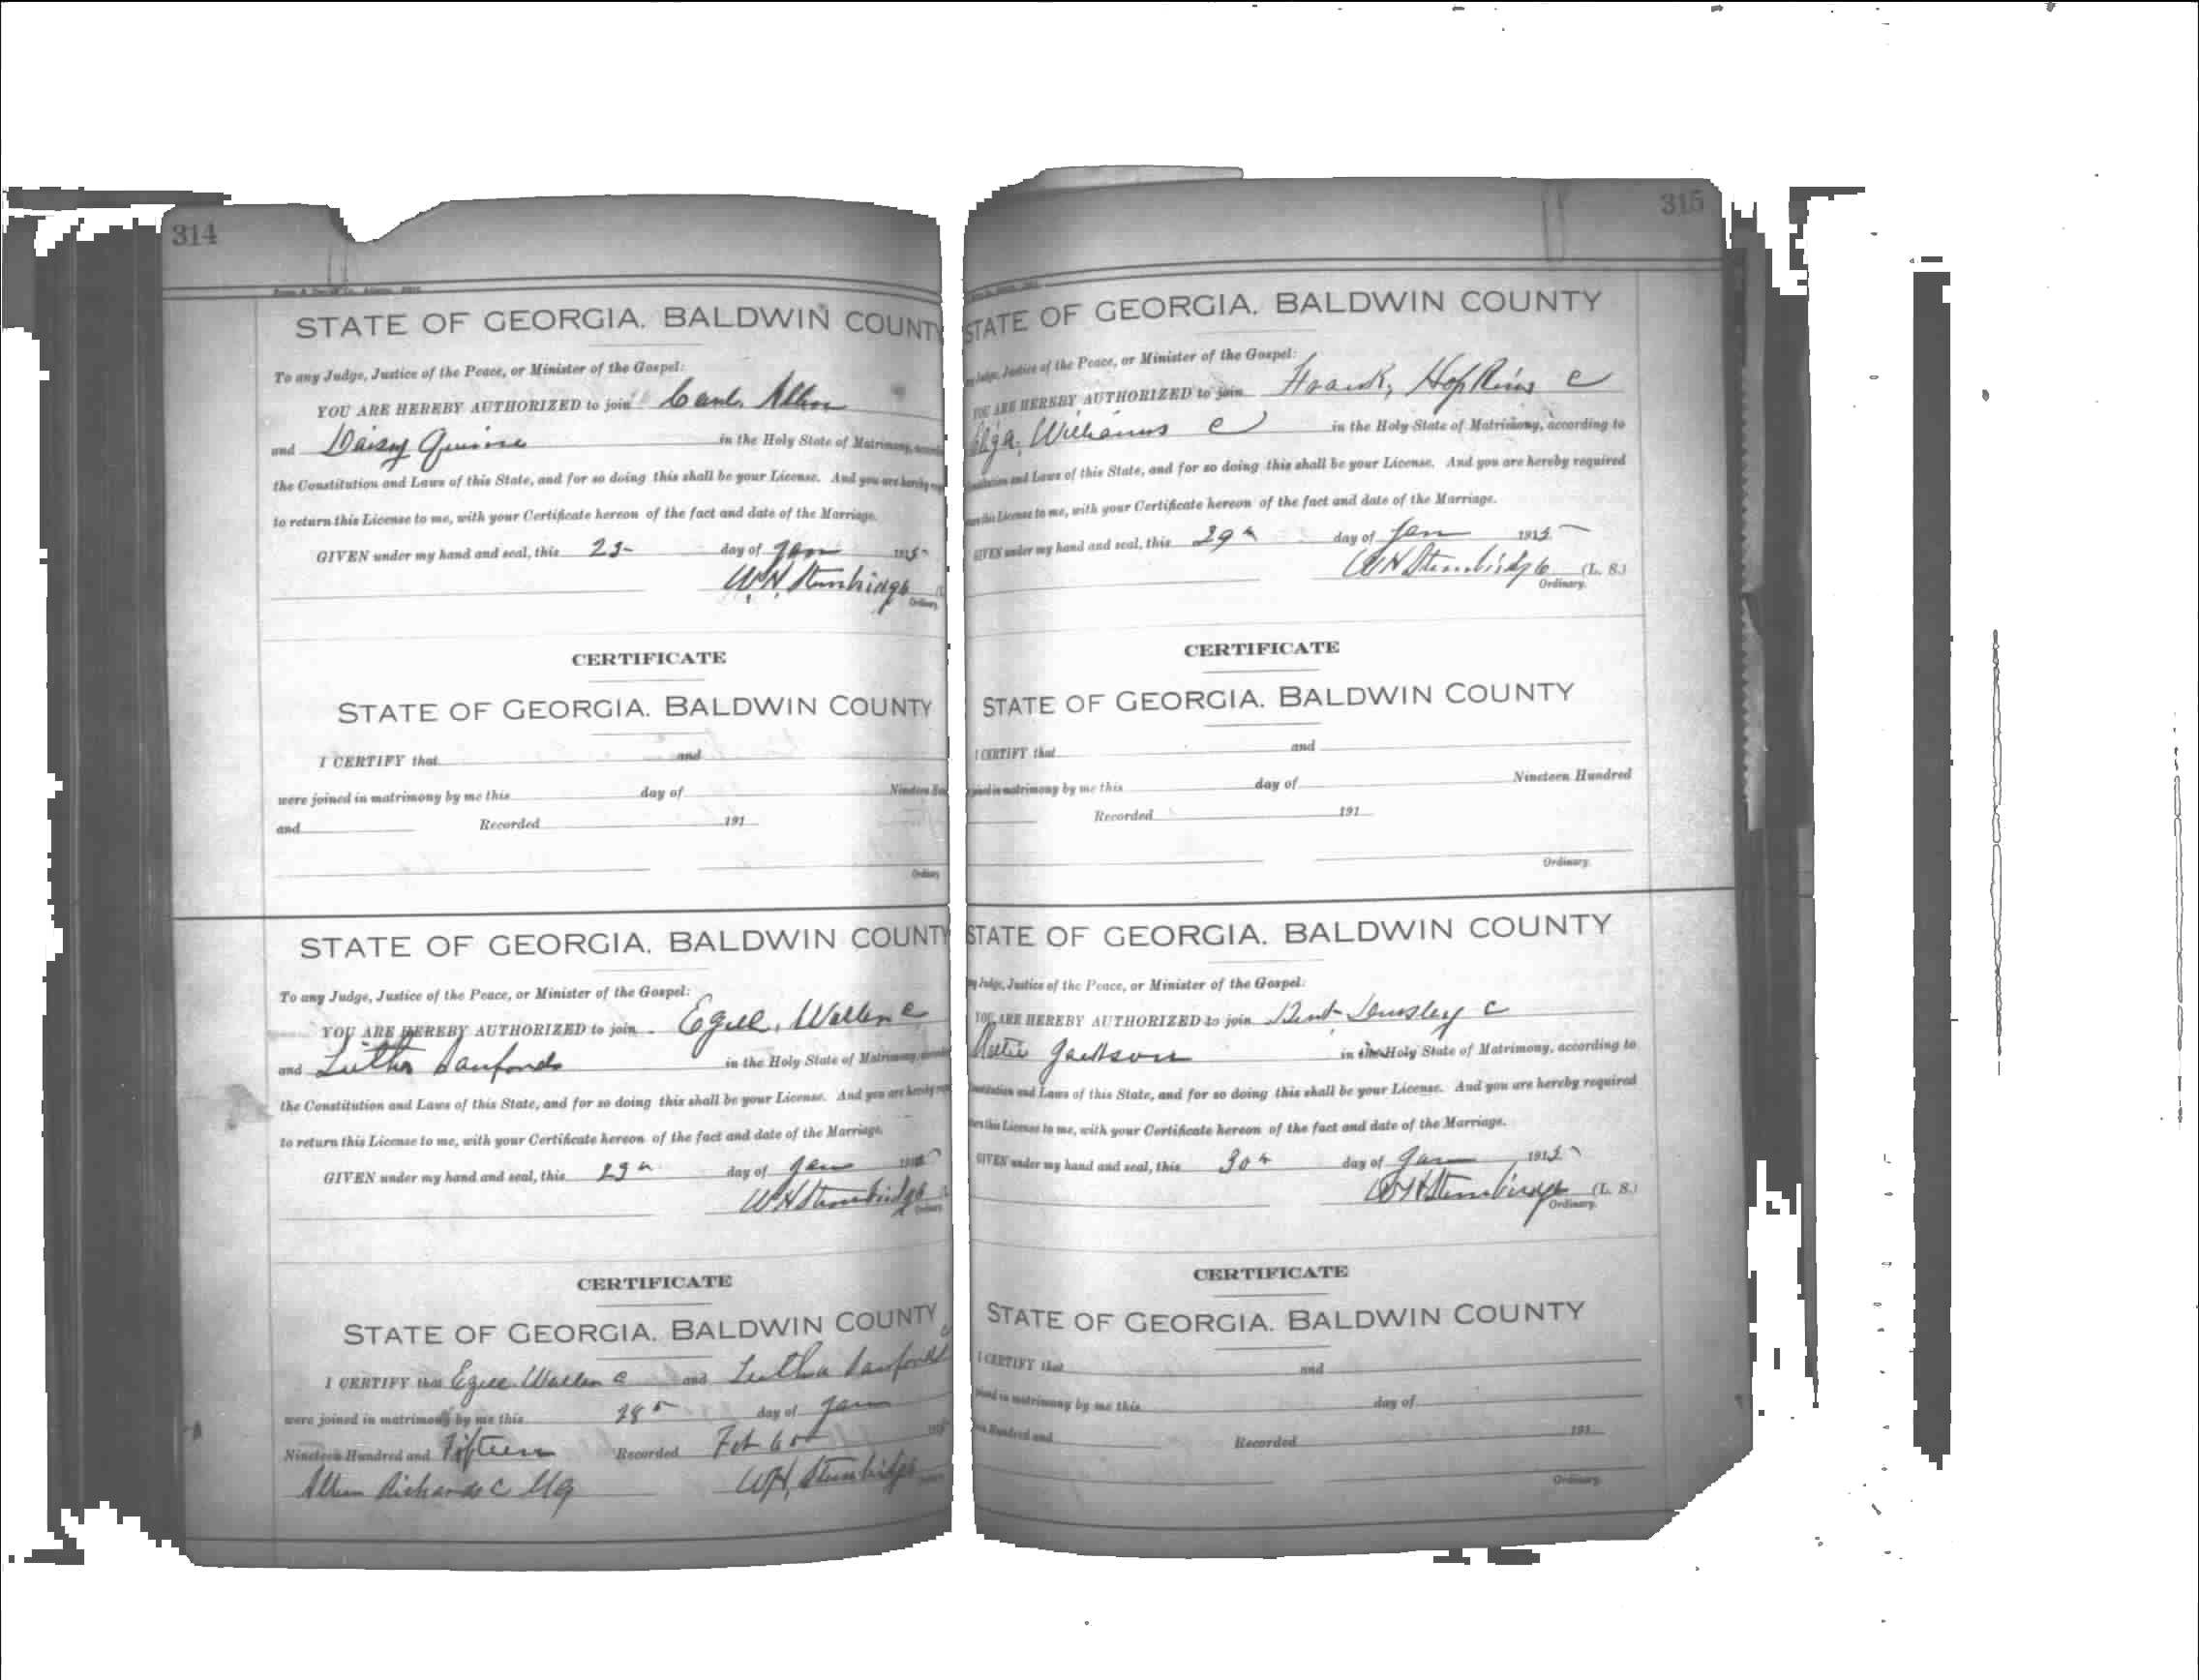 314
STATE OF GEORGIA. BALDWIN COUNTY
To any Judge, Justice of the Peace, or Minister of the Gospel:
YOU ARE HEREBY AUTHORIZED to join Carl. Allen
and Daisy in the Holy State of Matrimony,
the Constitution and Laws of this State, and for so doing this shall be your License. And you are hereby
to return this License to me, with your Certificate hereon of the fact and date of the Marriage.
GIVEN under my hand and seal, this day of Jan 1915
W.H. Stembridge
Ordinary
CERTIFICATE
STATE OF GEORGIA. BALDWIN COUNTY
I CERTIFY that and
were joined in matrimony by me this day of Nineteen
and Recorded 191
Ordinary
STATE OF GEORGIA. BALDWIN COUNTY
To any Judge, Justice of the Peace, or Minister of the Gospel:
YOU ARE HEREBY AUTHORIZED to join c
and Sanford in the Holy State of Matrimony,
the Constitution and Laws of this State, and for so doing this shall be your License. And you are hereby
to return this License to me, with your Certificate hereon of the fact and date of the Marriage.
GIVEN under my hand and seal, this day of Jan
W H Stembridge
Ordinary
CERTIFICATE
STATE OF GEORGIA. BALDWIN COUNTY
I CERTIFY that c and Sanford
were joined in matrimony by me this 28 day of Jan
Nineteen Hundred and Fifteen Recorded
Richards C MG W.H. Stembridge
315
STATE OF GEORGIA. BALDWIN COUNTY
Judge, Justice of the Peace, or Minister of the Gospel:
YOU ARE HEREBY AUTHORIZED to join Frank, Hopkins c
Williams c in the Holy State of Matrimony, according to
and Laws of this State, and for so doing this shall be your License. And you are hereby required
this License to me, with your Certificate hereon of the fact and date of the Marriage.
GIVEN under my hand and seal, this 29 day of Jan 1915
W H Stembridge (L. S.)
Ordinary.
CERTIFICATE
STATE OF GEORGIA. BALDWIN COUNTY
I CERTIFY that and
joined in matrimony by me this day of Nineteen Hundred
Recorded 191
Ordinary.
STATE OF GEORGIA. BALDWIN COUNTY
Judge, Justice of the Peace, or Minister of the Gospel:
YOU ARE HEREBY AUTHORIZED to join c
Jackson in the Holy State of Matrimony, according to
and Laws of this State, and for so doing this shall be your License. And you are hereby required
this License to me, with your Certificate hereon of the fact and date of the Marriage.
GIVEN under my hand and seal, this 30 day of Jan 1915
W H Stembridge (L. S.)
Ordinary.
CERTIFICATE
STATE OF GEORGIA. BALDWIN COUNTY
I CERTIFY that and
joined in matrimony by me this day of
Hundred and Recorded 191
Ordinary.